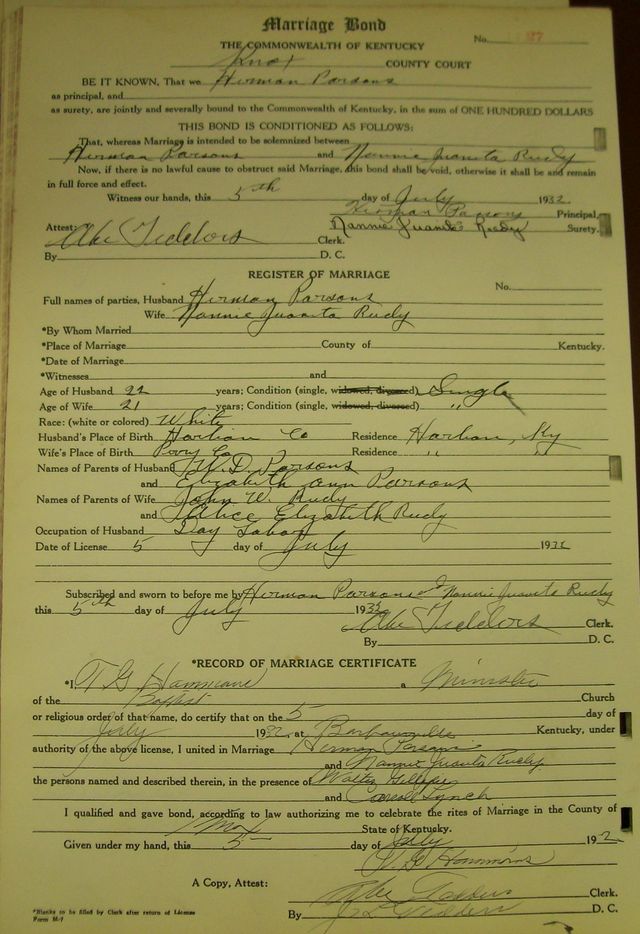 Marriage Bond
THE COMMONWEALTH OF KENTUCKY
No. 27
Knox COUNTY COURT
BE IT KNOWN, That we Herman Parsons
as principal, and
as surety, are jointly and severally bound to the Commonwealth of Kentucky, in the sum of ONE HUNDRED DOLLARS
THIS BOND IS CONDITIONED AS FOLLOWS:
That, whereas Marriage is intended to be solemnized between
Herman Parsons and Nannie Juanita Rudy
Now, if there is no lawful cause to obstruct said Marriage, this bond shall be void, otherwise it shall be and remain
in full force and effect.
Witness our hands, this 5th day of July 1932
Herman Parsons Principal,
Nannie Juanita Rudy Surety.
Attest: Abe Tedders Clerk.
By D. C.
REGISTER OF MARRIAGE
No.
Full names of parties, Husband Herman Parsons
Wife Nannie Juanita Rudy
*By Whom Married
*Place of Marriage County of Kentucky.
*Date of Marriage
*Witnesses and
Age of Husband 22 years; Condition (single, widowed, divorced) Single
Age of Wife 21 years; Condition (single, widowed, divorced) "
Race: (white or colored) White
Husband's Place of Birth Harlan Co Residence Harlan, Ky
Wife's Place of Birth Perry Co Residence " "
Names of Parents of Husband D. Parsons
and Elizabeth Ann Parsons
Names of Parents of Wife John W. Rudy
and Alice Elizabeth Rudy
Occupation of Husband Day Labor
Date of License 5 day of July 1932
Subscribed and sworn to before me by Herman Parsons & Nannie Juanita Rudy
this 5th day of July 1932
Abe Tedders Clerk.
By D. C.
*RECORD OF MARRIAGE CERTIFICATE
*I, T G Hammons a Minister
of the Baptist Church
or religious order of that name, do certify that on the 5 day of
July 1932, at Barbourville Kentucky, under
authority of the above license, I united in Marriage Herman Parsons
and Nannie Juanita Rudy
the persons named and described therein, in the presence of Walter Gillespie
and Carroll Lynch
I qualified and gave bond, according to law authorizing me to celebrate the rites of Marriage in the County of
Knox State of Kentucky.
Given under my hand, this 5 day of July 1932
G Hammons
A Copy, Attest:
Abe Tedders Clerk.
By Tedders D. C.
*Blanks to be filled by Clerk after return of License
Form M-7